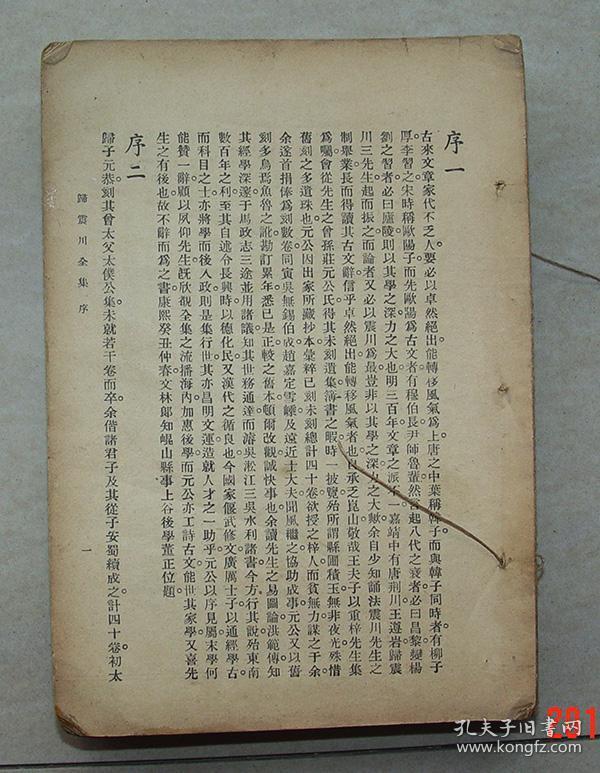 序一
古來文章家代不乏人要必以卓然絕出能轉移風氣爲上唐之中葉稱韓子而與韓子同時者有柳子
厚李習之宋時稱歐陽子而先歐陽爲古文者有穆伯長尹師魯輩然言起八代之衰者必曰昌黎變楊
劉之習者必曰廬陵則以其學之深力之大也明三百年文章之派不一嘉靖中有唐荆川王遵岩歸震
川三先生起而振之而論者又必以震川爲最豈非以其學之深力之大歟余自少知誦法震川先生之
制舉業長而得讀其古文辭信乎卓然絕出能轉移風氣者也 承乏崑山敬哉王夫子以重梓先生集
爲囑會從先生之曾孫莊元公氏得其未刻遺集簿書之暇時一披覽殆所謂縣圃積玉無非夜光殊惜
舊刻之多遺珠也元公因出家所藏抄本彙粹已刻未刻總計四十卷欲授之梓人而貧無力謀之于余
余遂首捐俸爲刻數卷同寅吳無錫伯成趙嘉定雪嵊及遠近士大夫聞風繼之協助成事元公又以舊
刻多烏焉魚魯之訛勘訂累年悉已是正較之舊本頓爾改觀誠快事也余讀先生之易圖論洪範傳知
其經學深邃于馬政志三途並用諸議知其世務通達而濬吳淞江三吳水利諸書今方行其說殆東南
數百年之利至其自述令長興時以德化民又漢代之循良也今國家偃武修文廣厲士子以通經學古
而科目之士亦將學而後入政則是集行世其亦昌明文運造就人才之一助乎元公以序見屬末學何
能贊一辭顧以夙仰先生旣欣覩全集之流播海內加惠後學而元公亦工詩古文能世其家學又喜先
生之有後也故不辭而爲之書康熙癸丑仲春文林郞知崐山縣事上谷後學董正位題
序二
歸子元恭刻其曾太父太僕公集未就若干卷而卒余偕諸君子及其從子安蜀續成之計四十卷初太
歸震川全集 序
一
孔夫子旧书网
www.kongfz.com
201